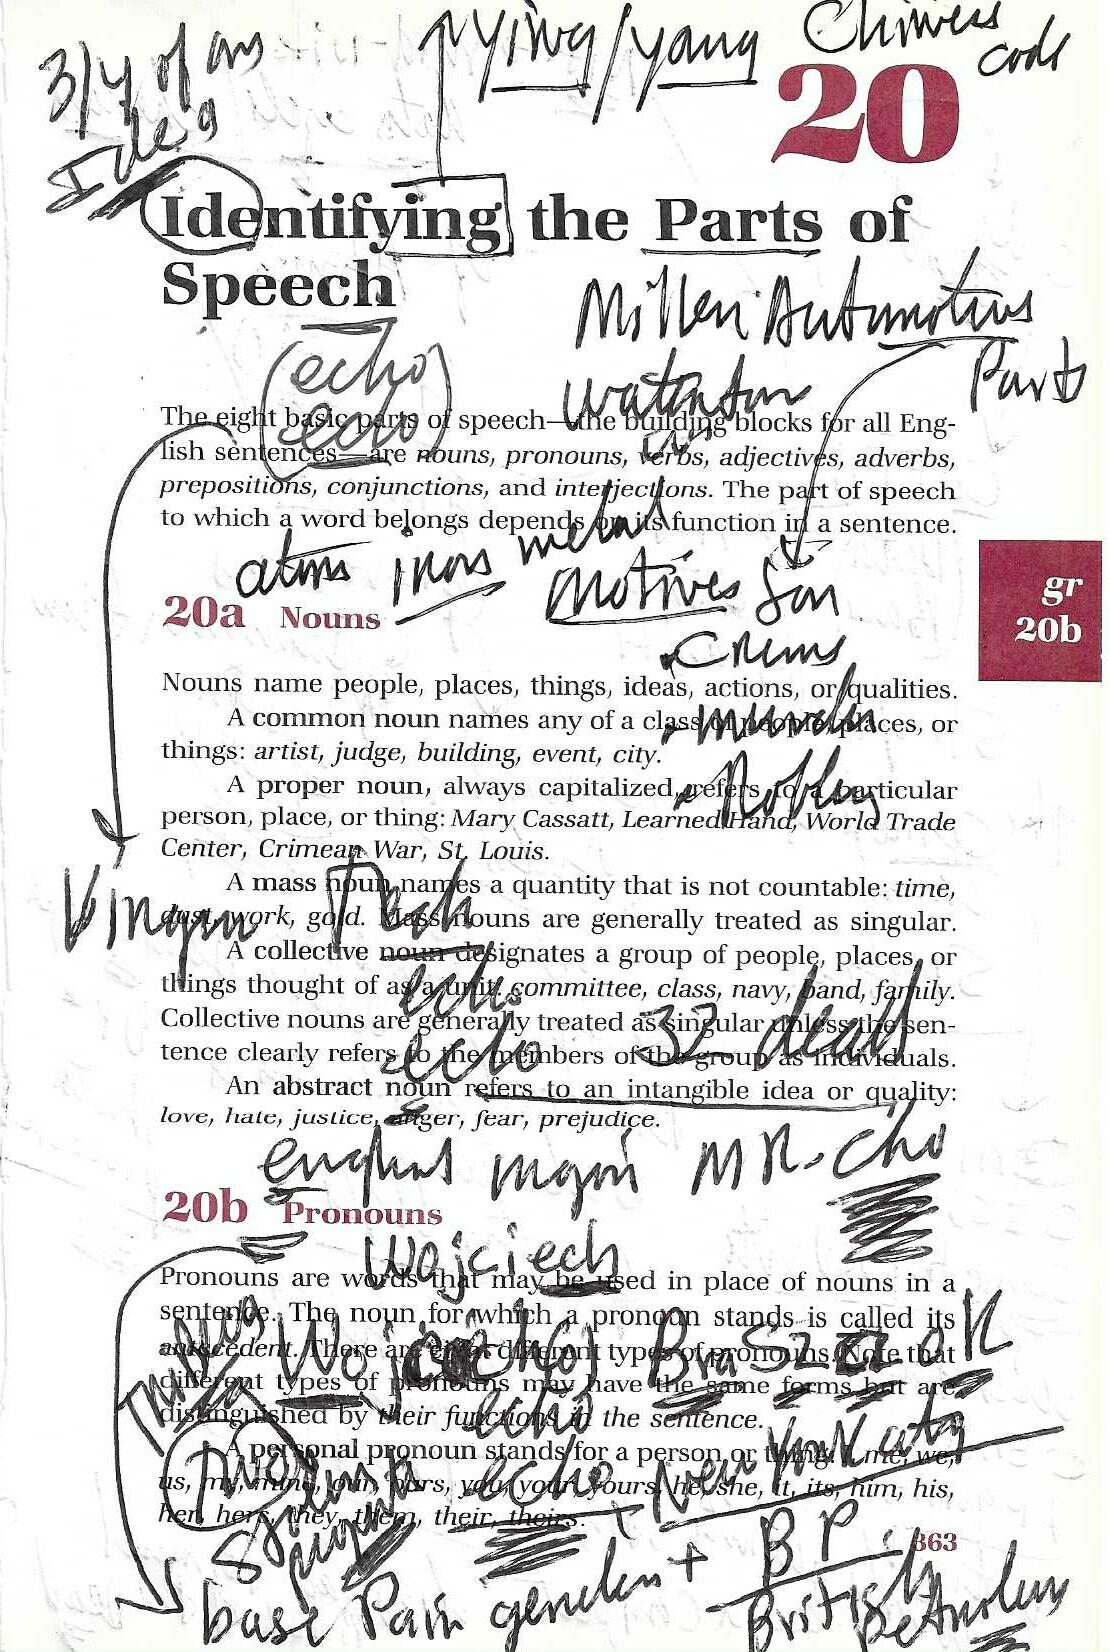 3/4 of an
Idea
ying/yang
Chiness
code
20
Identifying the Parts of
Speech
Automotives
Parts
(echo)
echo
The eight basic parts of speech—the building blocks for all Eng-
lish sentences—are nouns, pronouns, verbs, adjectives, adverbs,
prepositions, conjunctions, and interjections. The part of speech
to which a word belongs depends on its function in a sentence.
atoms inons metal
motives for
gr
20b
20a Nouns
- Crems
Nouns name people, places, things, ideas, actions, or qualities.
A common noun names any of a class of people, places, or
- murder
things: artist, judge, building, event, city.
A proper noun, always capitalized, refers to a particular
- Robbery
person, place, or thing: Mary Cassatt, Learned Hand, World Trade
Center, Crimean War, St. Louis.
A mass noun names a quantity that is not countable: time,
Tech
dust, work, gold. Mass nouns are generally treated as singular.
A collective noun designates a group of people, places, or
echo
things thought of as a unit: committee, class, navy, band, family.
Collective nouns are generally treated as singular unless the sen-
32 dead
echo
tence clearly refers to the members of the group as individuals.
An abstract noun refers to an intangible idea or quality:
love, hate, justice, anger, fear, prejudice.
english major MR. Cho
20b Pronouns
Wojciech
Pronouns are words that may be used in place of nouns in a
sentence. The noun for which a pronoun stands is called its
Wojciech BraSzczoK
antecedent. There are eight different types of pronouns. Note that
different types of pronouns may have the same forms but are
echo
distinguished by their functions in the sentence.
A personal pronoun stands for a person or thing: I, me, we,
echo New York city
us, my, mine, our, ours, you, your, yours, he, she, it, its, him, his,
her, hers, they, them, their, theirs.
363
base Pair gender + BP
British petroleum